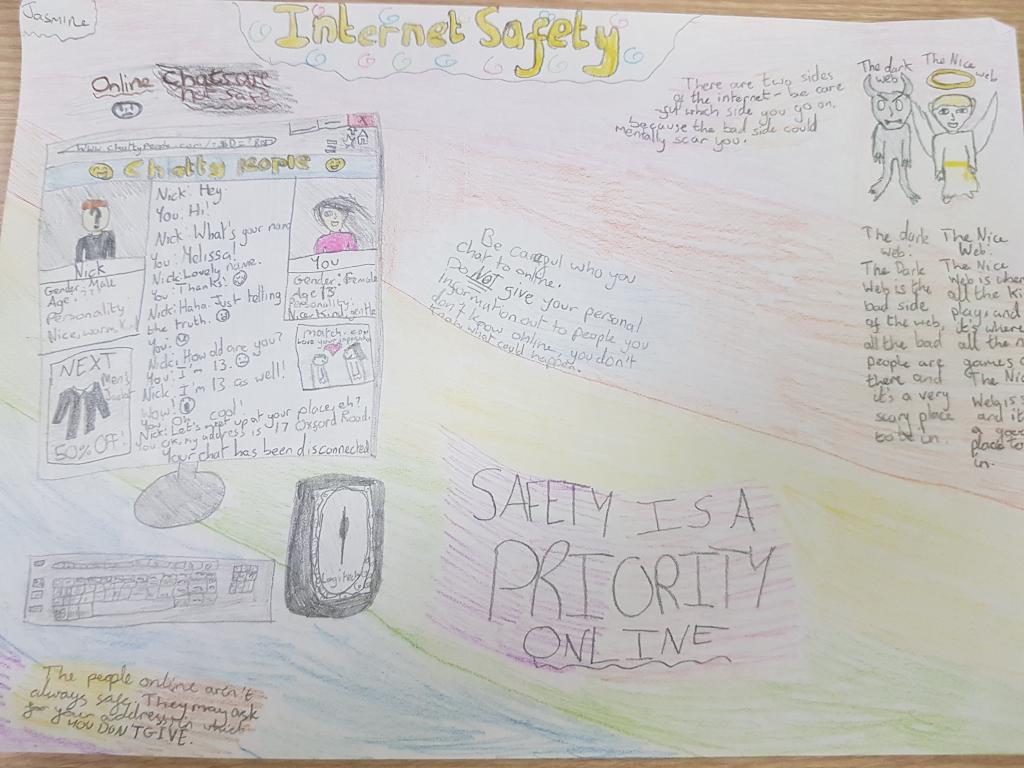 Jasmine
Internet Safety
Online Chats are
not safe
There are two sides
of the internet - be care
ful which side you go on,
because the bad side could
mentally scar you.
The dark
web
The Nice
web
X
Chatty people
Nick
Gender: Male
Age: ??
Personality:
Nice, warm, Kind
NEXT
Men's
Jacket
50% OFF!
Nick: Hey
You: Hi!
Nick: What's your name
You: Melissa!
Nick: Lovely name.
You: Thanks!
Nick: Haha. Just telling
the truth.
You:
Nick: How old are you?
You: I'm 13.
Nick: I'm 13 as well!
Wow!
You: Oh, cool!
Nick: Let's meet up at your place, eh?
You OK, my address is 17 Oxford Road.
Your chat has been disconnected
You
Gender: Female
Age 13
Personality:
Nice, Kind, gentle
match.com
Be careful who you
chat to online.
Do NOT give your personal
information out to people you
don't know online, you don't
know what could happen.
The dark
web:
The Dark
Web is the
bad side
of the web,
all the bad
people are
there and
it's a very
scary place
to be in.
The Nice
Web:
The Nice
Web is where
all the Ki
play, and
it's where
all the n
games a
The Nic
Web is s
and it
a good
place to
in.
Logitech
SAFETY IS A
PRIORITY
ONLINE
The people online aren't
always safe. They may ask
for your address, in which
YOU DON'T GIVE.